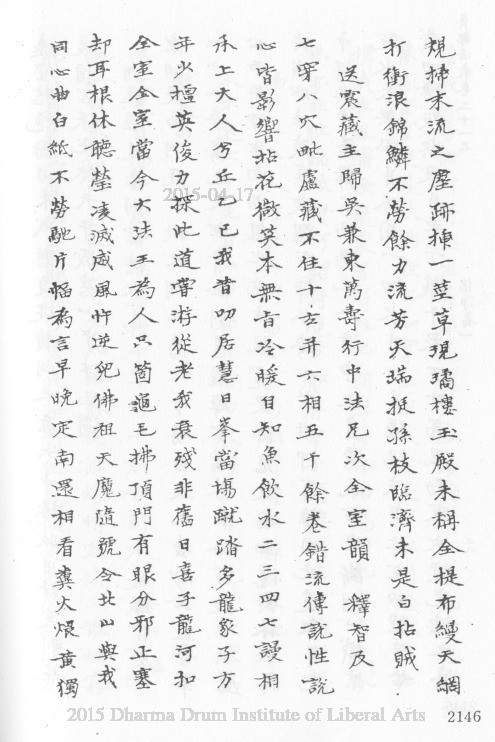 規掃末流之塵跡揀一莖草現璚樓玉殿未稱全提布縵天網
打衝浪錦鱗不勞餘力流芳天瑞挺孫枝臨濟未是白拈賊
送裒藏主歸吳兼柬萬壽行中法兄次全室韻 釋智及
七穿八穴毗盧藏不住十玄并六相五千餘卷錯流傳說性說
心皆影響拈花微笑本無旨冷暖自知魚飲水二三四七謾相
承上大人兮丘乙已我昔叨居慧日峯當場蹴踏多龍象子方
年少擅英俊力探此道嘗游從老我衰殘非舊日喜子龍河扣
全室全室當今大法王為人只箇龜毛拂頂門有眼分邪正塞
却耳根休聽瑩凌滅威風忤逆兒佛祖天魔隨號令北山與我
同心曲白紙不勞馳片幅為言早晚定南還相看糞火煨黃獨
2015-04-17
2015 Dharma Drum Institute of Liberal Arts
2146